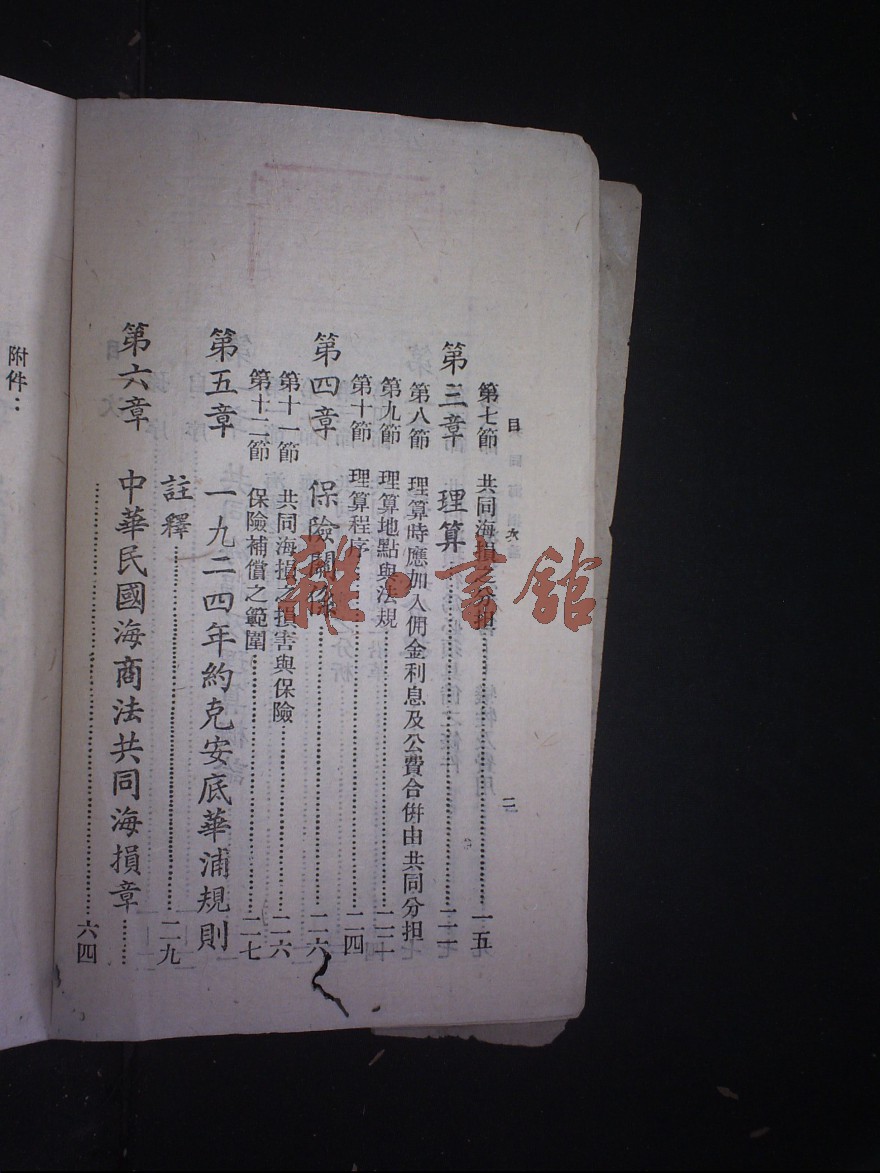 目次 二
第七節 共同海損之分担……一五
第三章 理算……二一
第八節 理算時應加入佣金利息及公費合倂由共同分担
第九節 理算地點與法規……二二
第十節 理算程序……二四
第四章 保險關係……二六
第十一節 共同海損之損害與保險……二六
第十二節 保險補償之範圍……二七
第五章 一九二四年約克安底華浦規則
註釋……二九
第六章 中華民國海商法共同海損章……
……六四
附件：
雜·書館